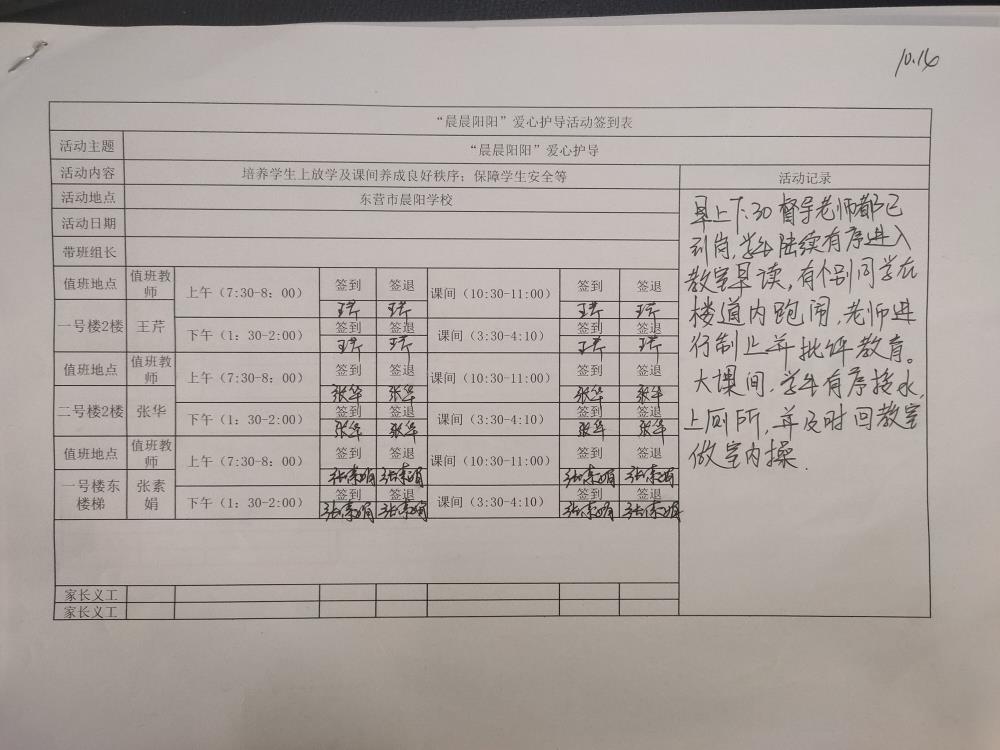 10.16
“晨晨阳阳”爱心护导活动签到表
活动主题 “晨晨阳阳”爱心护导
活动内容 培养学生上放学及课间养成良好秩序；保障学生安全等 活动记录
活动地点 东营市晨阳学校
活动日期
带班组长
值班地点 值班教师 上午（7:30-8：00） 签到 签退 课间（10:30-11:00） 签到 签退
王芹 王芹 王芹 王芹
一号楼2楼 王芹 下午（1：30-2:00） 签到 签退 课间（3:30-4:10） 签到 签退
王芹 王芹 王芹 王芹
值班地点 值班教师 上午（7:30-8：00） 签到 签退 课间（10:30-11:00） 签到 签退
张华 张华 张华 张华
二号楼2楼 张华 下午（1：30-2:00） 签到 签退 课间（3:30-4:10） 签到 签退
张华 张华 张华 张华
值班地点 值班教师 上午（7:30-8：00） 签到 签退 课间（10:30-11:00） 签到 签退
张素娟 张素娟 张素娟 张素娟
一号楼东楼梯 张素娟 下午（1：30-2:00） 签到 签退 课间（3:30-4:10） 签到 签退
张素娟 张素娟 张素娟 张素娟
家长义工
家长义工
早上7:30督导老师都已
到岗,学生陆续有序进入
教室早读,有个别同学在
楼道内跑闹,老师进
行制止并批评教育。
大课间,学生有序接水,
上厕所,并及时回教室
做室内操.